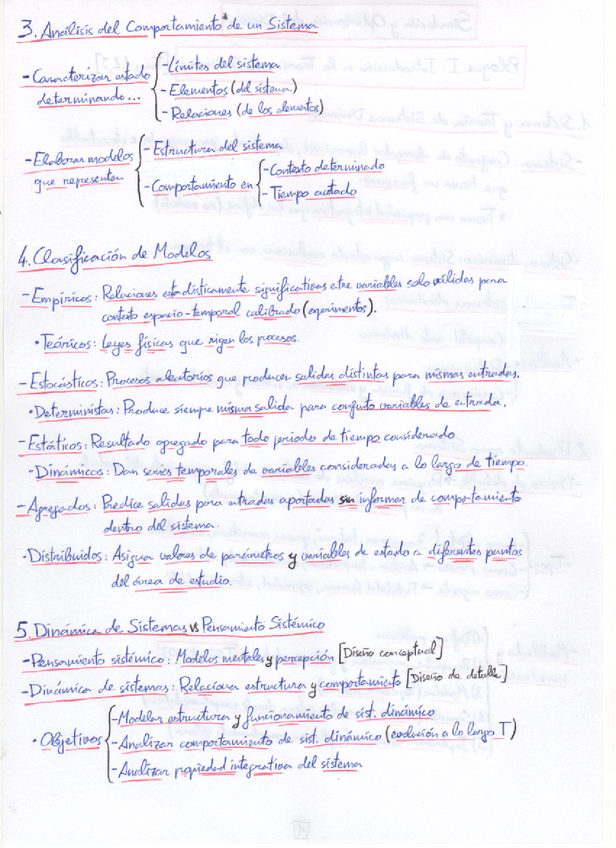 3. Análisis del Comportamiento de un Sistema
- Caracterizar estado determinando...
- Límites del sistema
- Elementos (del sistema)
- Relaciones (de los elementos)
- Elaborar modelos que representen
- Estructura del sistema
- Comportamiento en
- Contexto determinado
- Tiempo acotado
4. Clasificación de Modelos
- Empíricos: Relaciones estadísticamente significativas etre variables solo válidas para
contexto espacio-temporal calibrado (experimentos).
• Teóricos: Leyes físicas que rigen los procesos.
- Estocásticos: Procesos aleatorios que producen salidas distintas para mismas entradas.
• Deterministas: Produce siempre misma salida para conjunto variables de entrada.
- Estáticos: Resultado agregado para todo periodo de tiempo considerado
• Dinámicos: Dan series temporales de variables consideradas a lo largo de tiempo.
- Agregados: Predice salidas para entradas aportadas sin informar de comportamiento
dentro del sistema.
• Distribuidos: Asigna valores de parámetros y variables de estado a diferentes puntos
del área de estudio.
5. Dinámica de Sistemas vs Pensamiento Sistémico
- Pensamiento sistémico: Modelos mentales y percepción [Diseño conceptual]
- Dinámica de sistemas: Relaciona estructura y comportamiento [Diseño de detalle]
• Objetivos
- Modelar estructura y funcionamiento de sist. dinámico
- Analizar comportamiento de sist. dinámico (evolución a lo largo T)
- Analizar propiedad integrativa del sistema